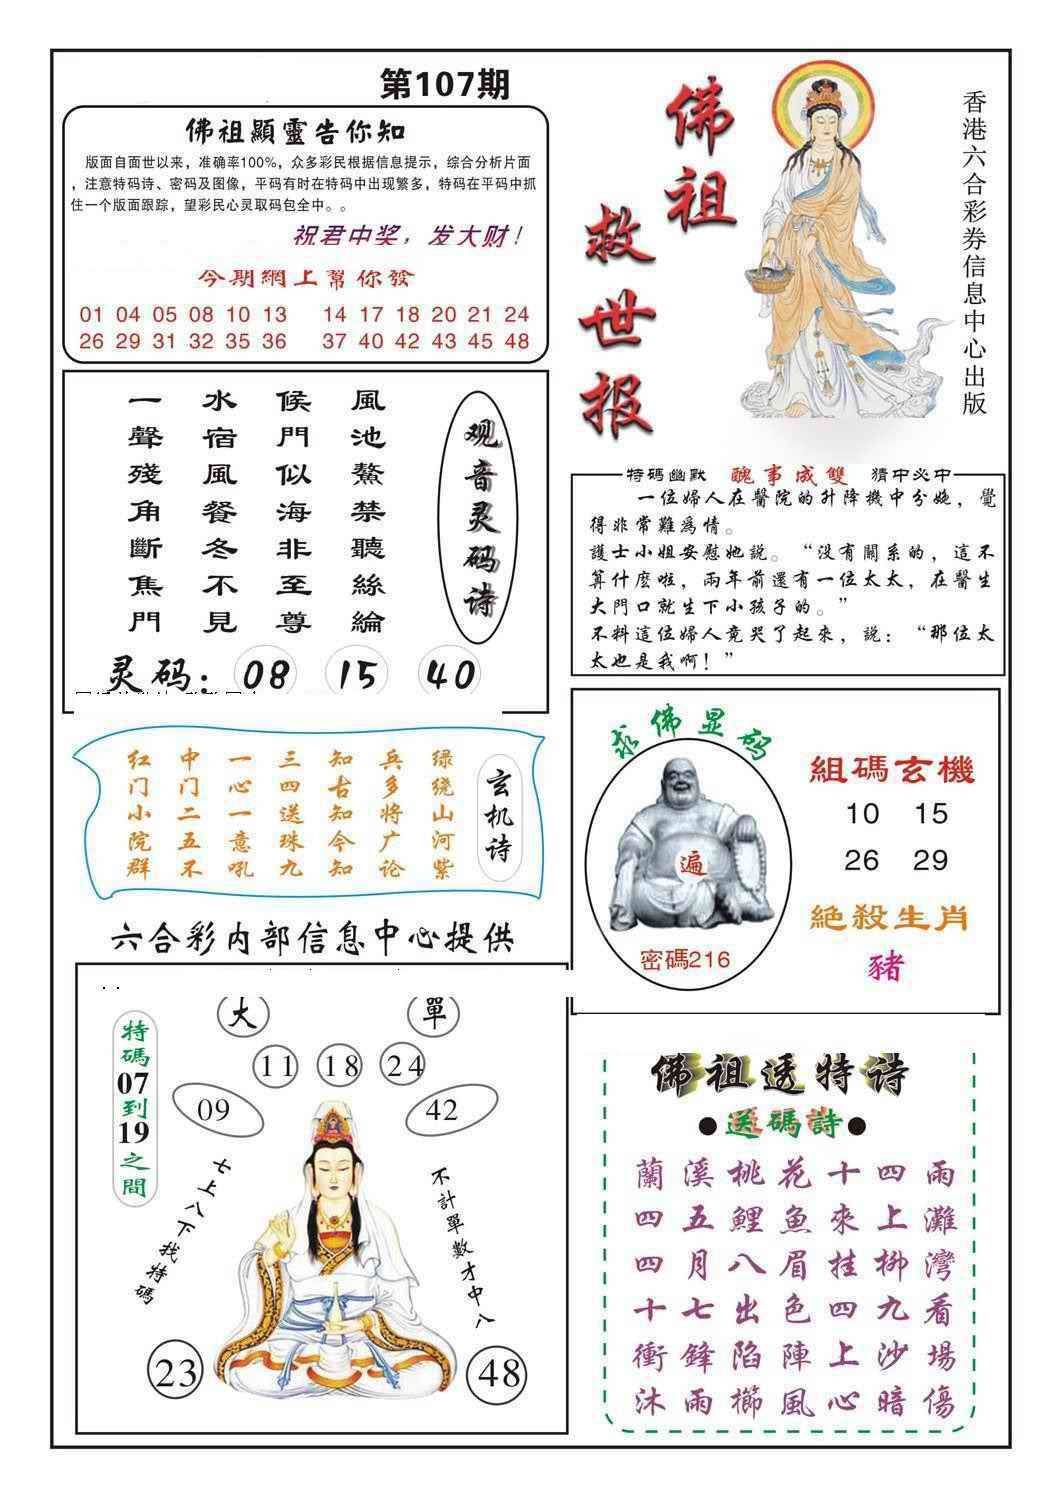 第107期
佛祖顯靈告你知
版面自面世以来，准确率100%，众多彩民根据信息提示，综合分析片面
，注意特码诗、密码及图像，平码有时在特码中出现繁多，特码在平码中抓
住一个版面跟踪，望彩民心灵取码包全中。。
祝君中奖，发大财！
今期網上幫你發
01 04 05 08 10 13 14 17 18 20 21 24
26 29 31 32 35 36 37 40 42 43 45 48
佛祖
救世报
香港六合彩券信息中心出版
观音灵码诗
風池鰲禁聽絲綸
候門似海非至尊
水宿風餐冬不見
一聲殘角斷焦門
灵码：08 15 40
特碼幽默 醜事成雙 猜中必中
一位婦人在醫院的升降機中分娩，覺
得非常難爲情。
護士小姐安慰她説。“没有關系的，這不
算什麽啦，兩年前還有一位太太，在醫生
大門口就生下小孩子的。”
不料這位婦人竟哭了起來，説：“那位太
太也是我啊！”
玄机诗
绿绕山河紫
兵多将广论
知古知今知
三四送珠九
一心一意吼
中门二五不
红门小院群
求佛显码
遍
密碼216
組碼玄機
10 15
26 29
絶殺生肖
豬
六合彩内部信息中心提供
大 單
11 18 24
09 42
特碼07到19之間
七上八下找特碼
不計單數才中八
23 48
佛祖透特诗
●送碼詩●
蘭溪桃花十四雨
四五鯉魚來上灘
四月八眉挂柳灣
十七出色四九看
衝鋒陷陣上沙場
沐雨櫛風心暗傷